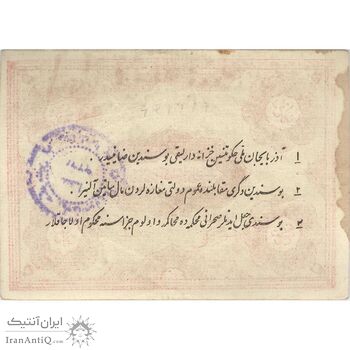 ۱ آذربایجان ملی حکومتینین خزانه دارلیقی بو سندین ضامنیدیر.
۲ بو سندین دگری مقابلینده عموم دولتی مغازه لردن مال ساتین آلنیر.
۳ بو سندی جعل ایدنلر صحرائی محکمه ده محاکمه و اولوم جزاسنه محکوم اولاجاقلار
ایران آنتیک
IranAntiQ.com